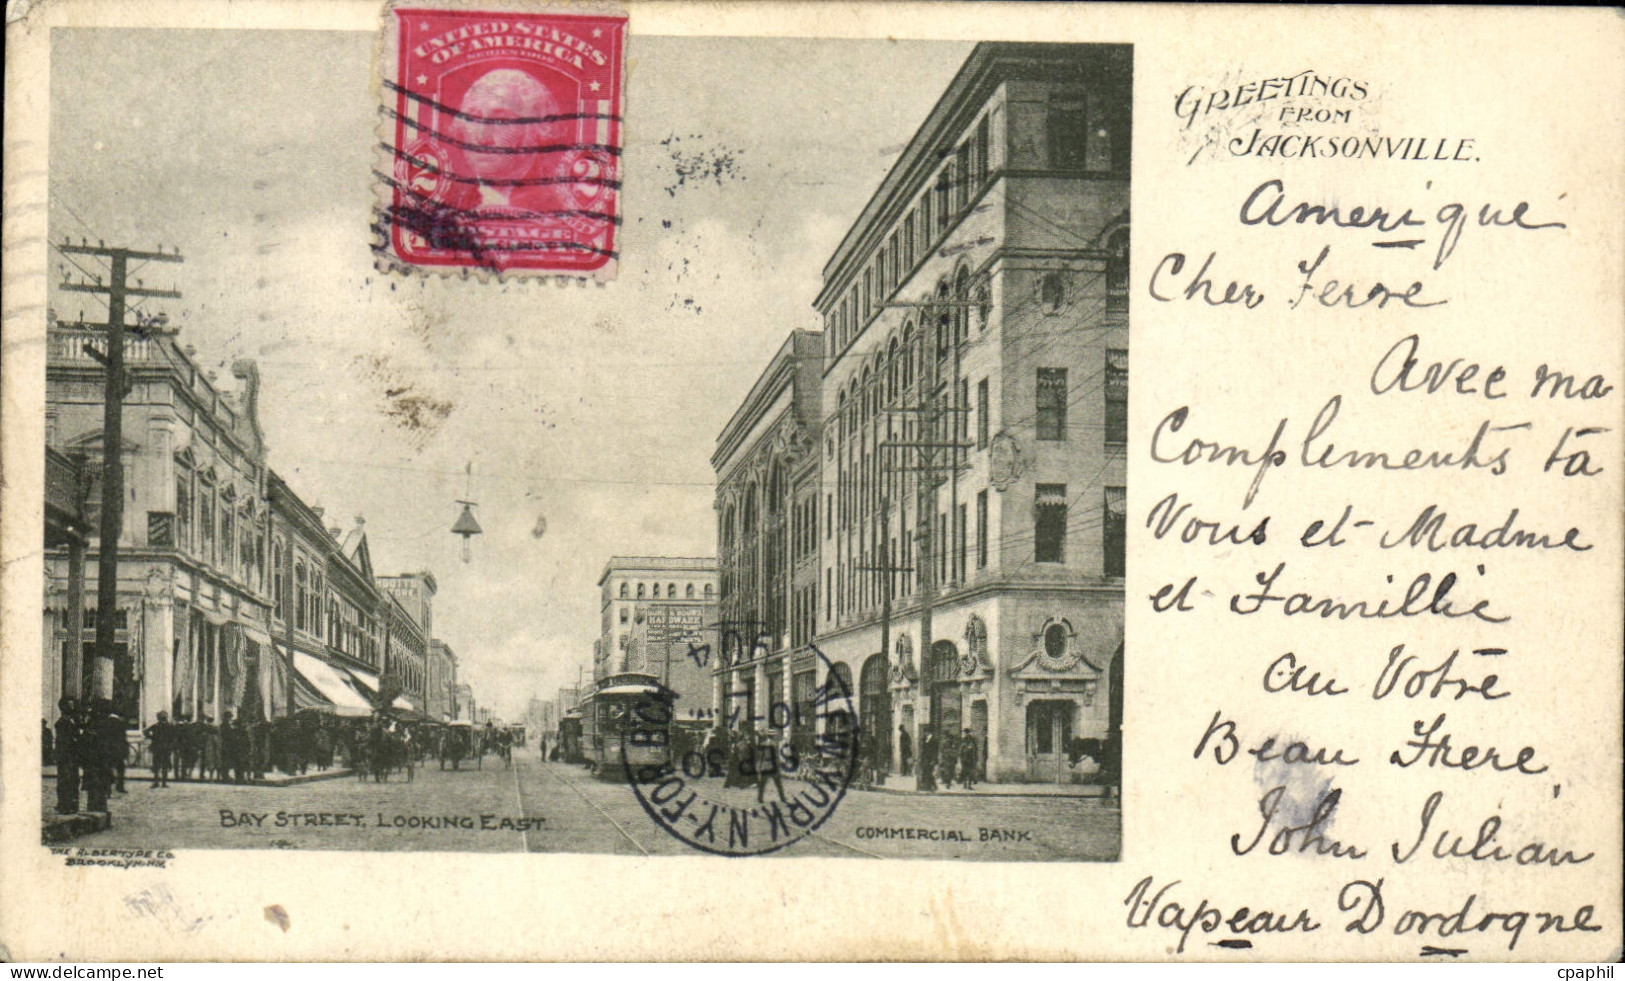 UNITED STATES
OF AMERICA
SERIES 1902
2 2
GREETINGS
FROM
JACKSONVILLE.
Amerique
Cher Ferre
Avec ma
Complements ta
Vous et Madme
et Famillie
au Votre
Beau Frere
John Julian
Vapeair Dordogne
HARDWARE
NEW YORK, N.Y.-FOR BCH
SEP 30
904
BAY STREET, LOOKING EAST.
COMMERCIAL BANK
THE ALBERTYPE CO.
BROOKLYN, N.Y.
Delcampe.net
cpaphil